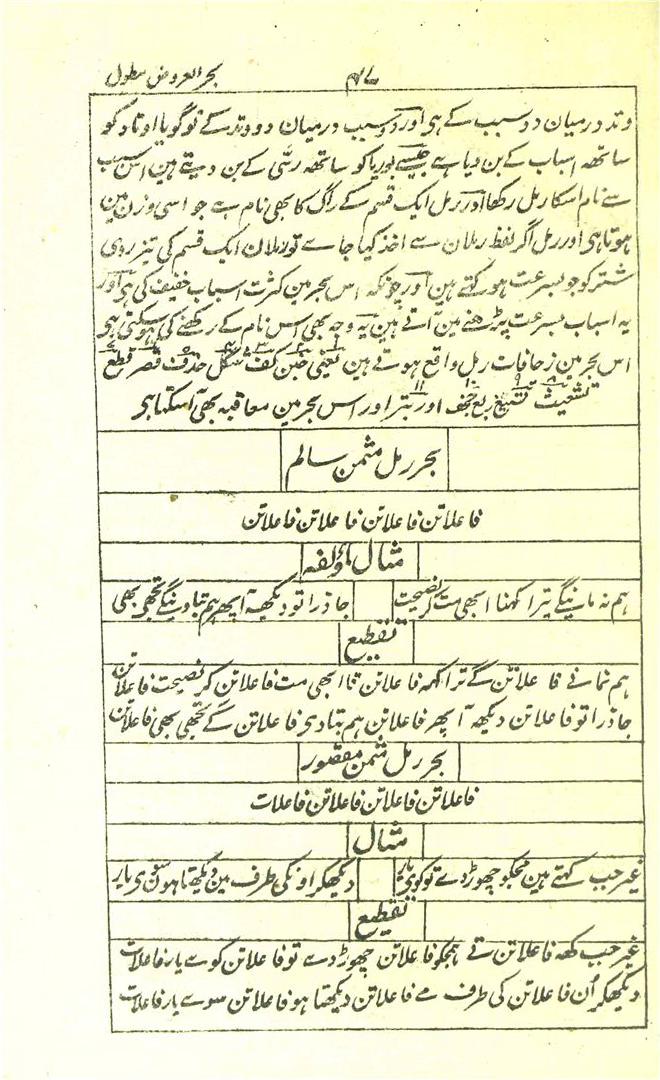 بحر العروض مطول
وتد درمیان دو سبب کے ہی اور دو سبب درمیان دو وتد کے تو گویا اوتاد کو
ساتھہ اسباب کے بن دیا ہے جیسے بوریا کو ساتھہ رسّی کے بن دیتے ہین اس سبب
سے نام اسکا رمل رکھا اور رمل ایک قسم کے راگ کا بھی نام ہے جو اسی وزن مین
ہوتا ہی اور رمل اگر لفظ رملان سے اخذ کیا جاے تو رملان ایک قسم کی تیز روی
شتر کو جو بسرعت ہو کہتے ہین اور چونکہ اس بحر مین کثرت اسباب خفیف کی ہی اور
یہ اسباب بسرعت پڑھنے مین آتے ہین یہ وجہ بھی اس نام کے رکھنے کی ہو سکتی ہی
اس بحر مین زحافات ذیل واقع ہوتے ہین یعنی خبن کف شکل حذف قصر قطع
تشعیث تسبیغ ربع جحف اور بتر اور اس بحر مین معاقبہ بھی آسکتا ہی
بحر رمل مثمن سالم
فاعلاتن فاعلاتن فاعلاتن فاعلاتن
مثال لمؤلفه
ہم نہ مانینگے ترا کہنا ابھی مت کر نصیحت
جا ذرا تو دیکھہ آ پھر ہم بتا دینگے تجھی بھی
تقطیع
ہم نمانے فاعلاتن گے ترا کہہ فاعلاتن نا ابھی مت فاعلاتن کر نصیحت فاعلاتن
جا ذرا تو فاعلاتن دیکھہ آ پھر فاعلاتن ہم بتا دی فاعلاتن گے تجھی بھی فاعلاتن
بحر رمل مثمن مقصور
فاعلاتن فاعلاتن فاعلاتن فاعلات
مثال
غیر جب کہتے ہین مجکو چھوڑ دے تو کوی یار
دیکھکر اونکی طرف مین دیکھتا ہون سوی یار
تقطیع
غیر جب کہہ فاعلاتن تے ہمجکو فاعلاتن چھوڑ دے تو فاعلاتن کوے یار فاعلات
دیکھکر اُن فاعلاتن کی طرف مے فاعلاتن دیکھتا ہو فاعلاتن سوے یار فاعلات